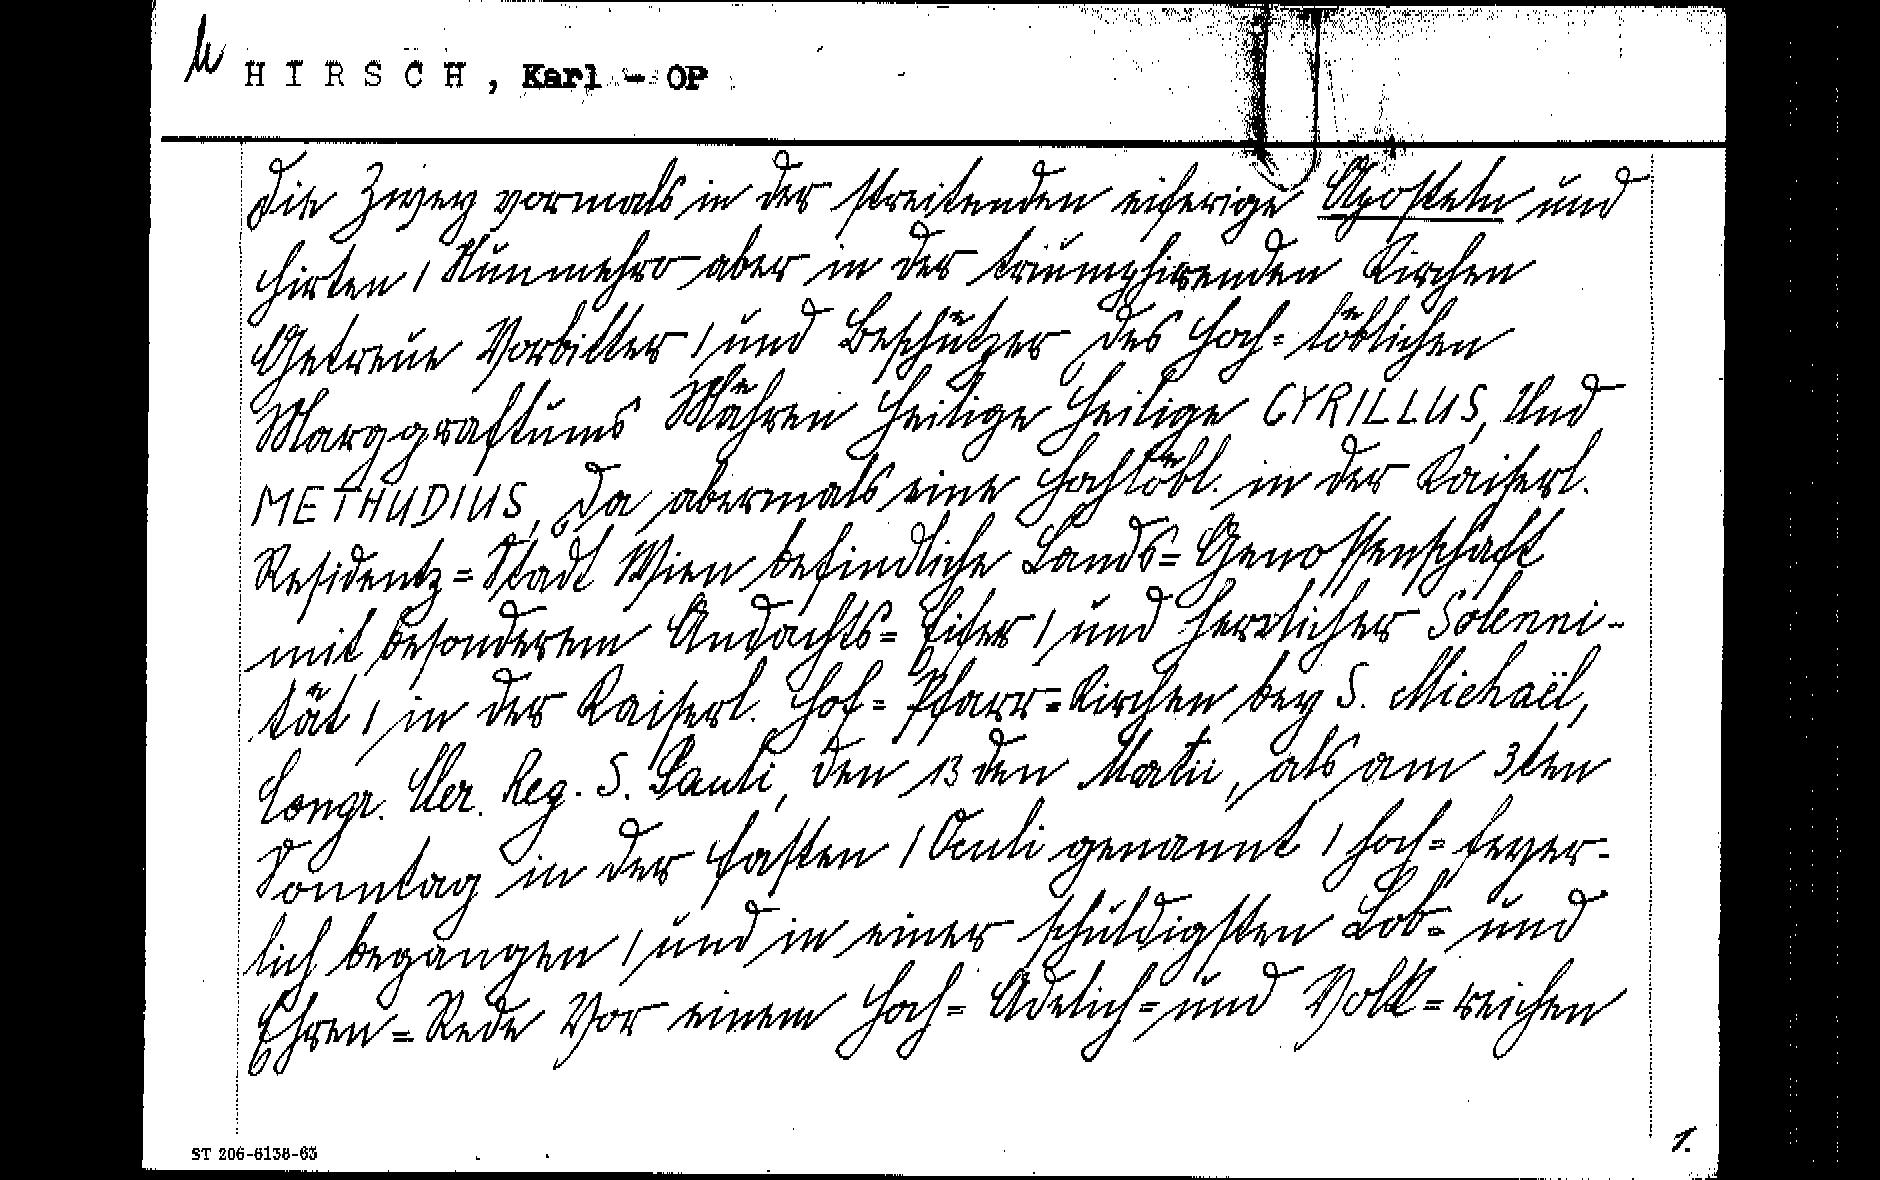 u HIRSCH, Karl - OP
Die Zwey vormals in der streitenden eiferige Aposteln und
Hirten / Nunmehro aber in der triumphirenden Kirchen
Getreue Vorbitter / und Beschützer des Hoch= löblichen
Marggraftums Mähren Heilige Heilige CYRILLUS, Und
METHUDIUS, Da abermals eine Hochlöbl. in der Kaiserl.
Residentz=Stadt Wien befindliche Lands=Genossenschaft
mit besonderem Andachts= Eifer / und herrlicher Solenni-
tät / in der Kaiserl. Hof= Pfarr=Kirchen bey S. Michaël,
Congr. Cler. Reg. S. Pauli, den 13 den Martii, als am 3ten
Sonntag in der Fasten / Oculi genannt / Hoch= feyer-
lich begangen / und in einer schuldigsten Lob= und
Ehren=Rede Vor einem Hoch= Adelich=und Volk=reichen
ST 206-6138-63
1.